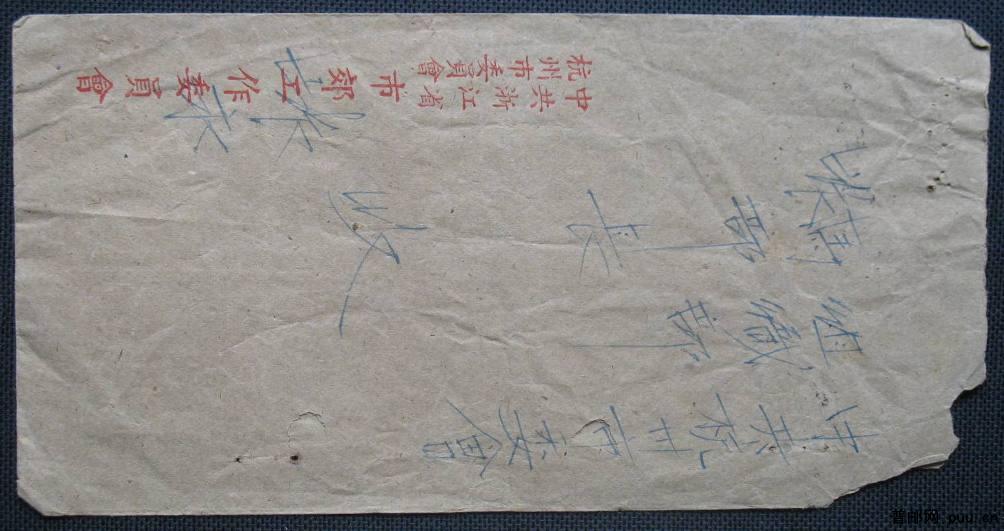 中共杭州市委會
组織部
部长收
中共浙江省
杭州市委員會
市郊工作委員會
普邮网 puu.cn